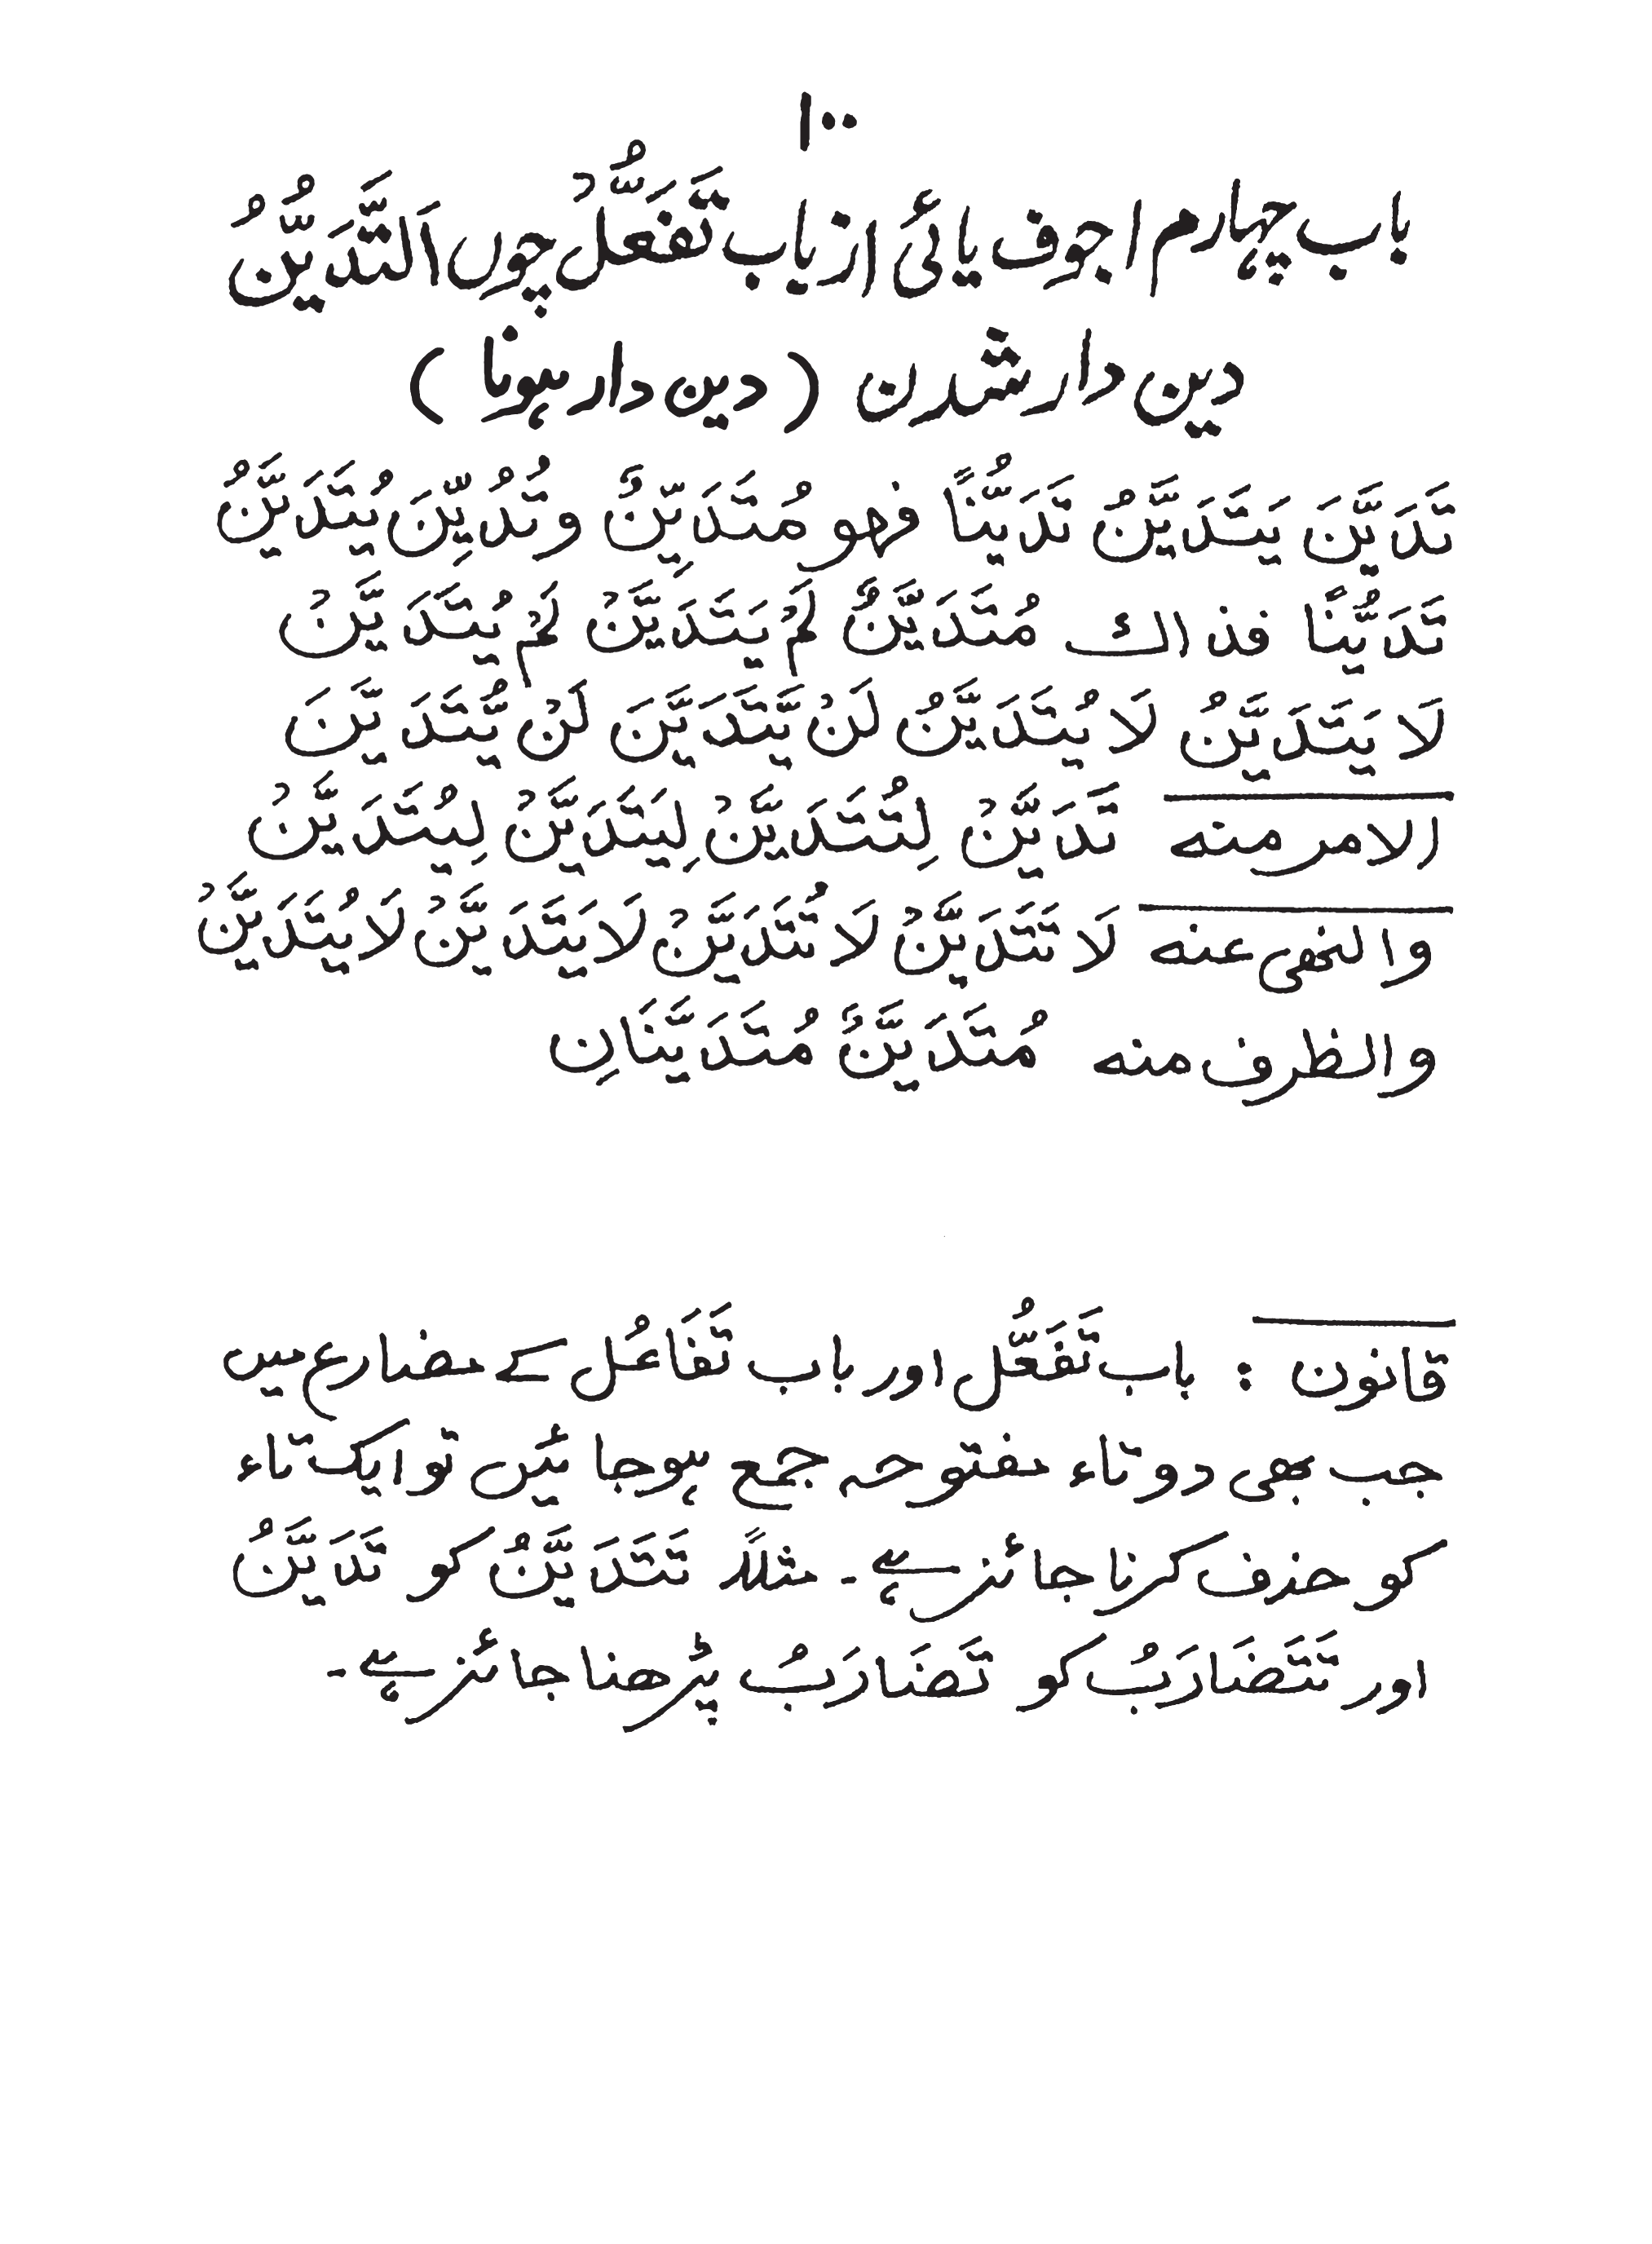 ۱۰۰
باب چہارم اجوف یائی از باب تَفَعُّلْ چوں اَلتَّدَیُّنُ
دین دار شدن (دین دار ہونا)
تَدَيَّنَ يَتَدَيَّنُ تَدَيُّنًا فهو مُتَدَيِّنٌ وتُدُيِّنَ يُتَدَيَّنُ
تَدَيُّنًا فذاك مُتَدَيَّنٌ لَمْ يَتَدَيَّنْ لَمْ يُتَدَيَّنْ
لَا يَتَدَيَّنُ لَا يُتَدَيَّنُ لَنْ يَّتَدَيَّنَ لَنْ يُّتَدَيَّنَ
الامر منه تَدَيَّنْ لِتُتَدَيَّنْ لِيَتَدَيَّنْ لِيُتَدَيَّنْ
والنهى عنه لَا تَتَدَيَّنْ لَا تُتَدَيَّنْ لَا يَتَدَيَّنْ لَا يُتَدَيَّنْ
والظرف منه مُتَدَيَّنٌ مُتَدَيَّنَانِ
قانون : باب تَفَعُّل اور باب تَفَاعُل کے مضارع میں
جب بھی دو تاء مفتوحہ جمع ہوجائیں تو ایک تاء
کو حذف کرنا جائز ہے۔ مثلاً تَتَدَيَّنُ کو تَدَيَّنُ
اور تَتَضَارَبُ کو تَضَارَبُ پڑھنا جائز ہے۔